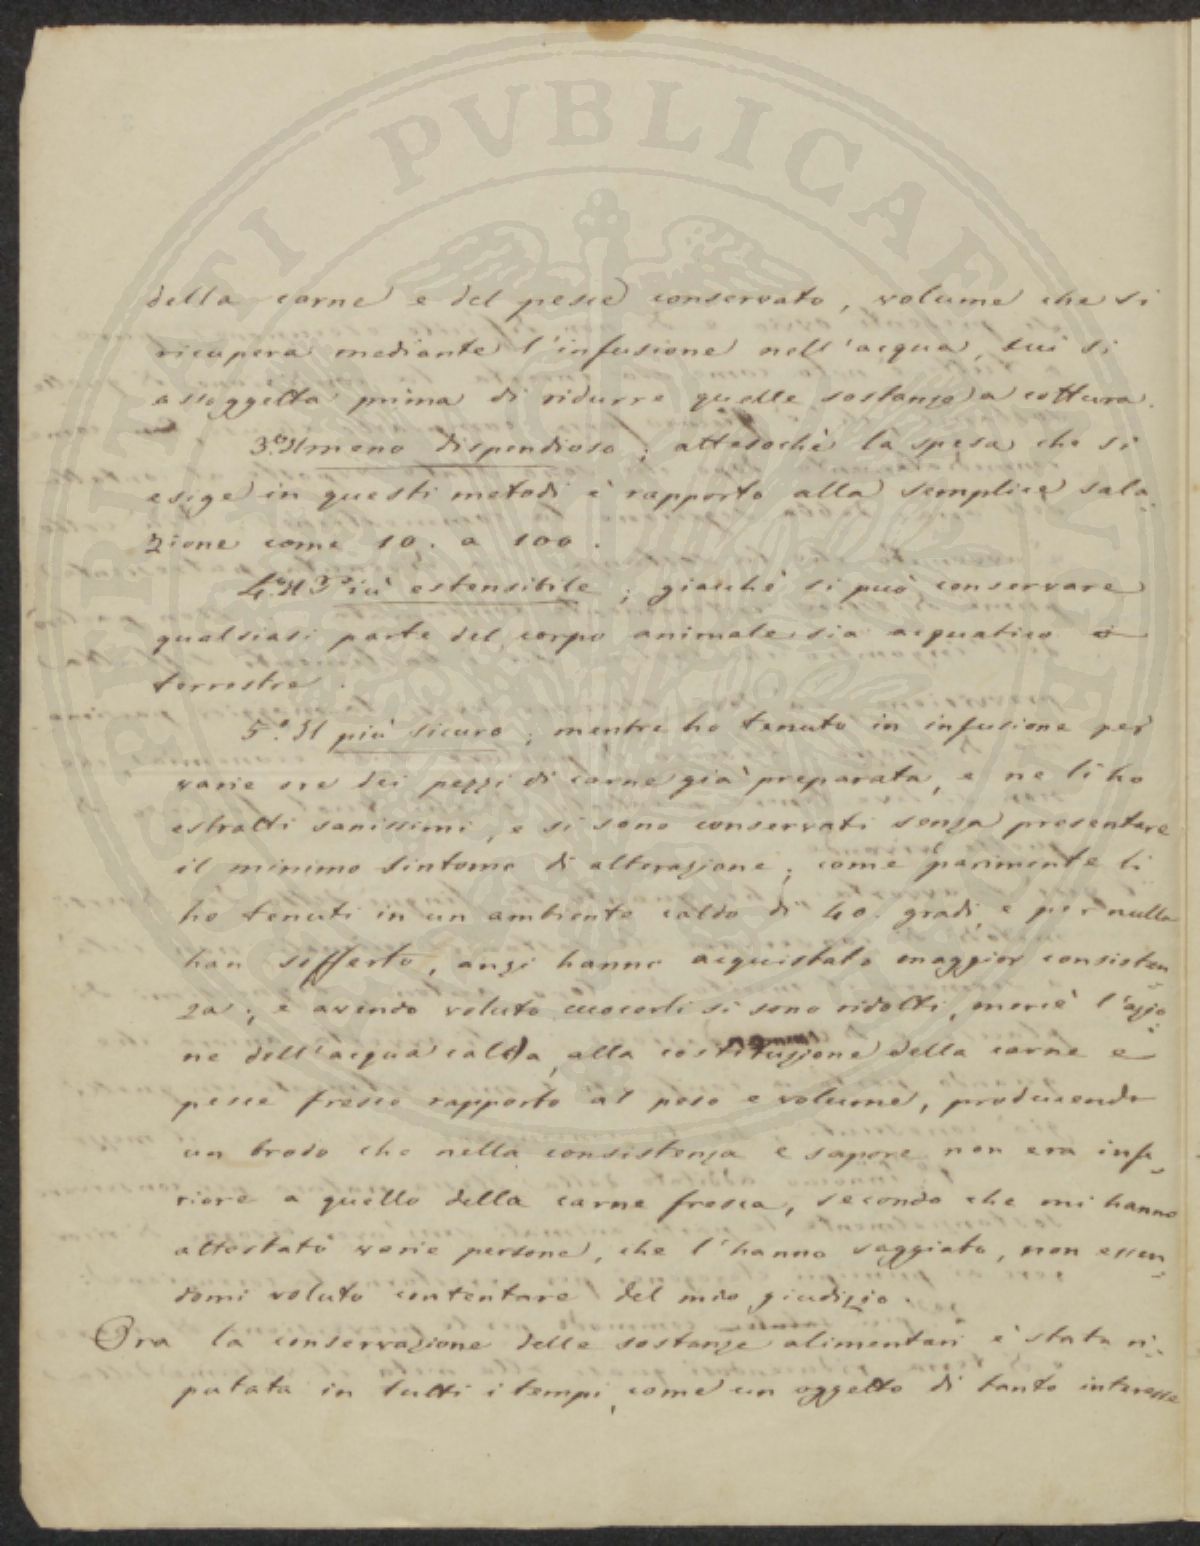 della carne e del pesce conservato, volume che si
ricupera mediante l'infusione nell'acqua, cui si
assoggetta prima di ridurre quelle sostanze a cottura.
3.º Il meno dispendioso; attesochè la spesa che si
esige in questi metodi è rapporto alla semplice sala
zione come 10. a 100.
4.º Il Più estensibile; giacchè si può conservare
qualsiasi parte del corpo animale sia acquatico o
terrestre.
5.º Il più sicuro; mentre ho tenuto in infusione per
varie ore dei pezzi di carne già preparata, e ne li ho
estratti sanissimi, e si sono conservati senza presentare
il minimo sintomo di alterazione; come parimente li
ho tenuti in un ambiente caldo di 40. gradi, e per nulla
han sofferto, anzi hanno acquistato maggior consisten
za; e avendo voluto cuocerli si sono ridotti, mercè l'azio
ne dell'acqua calda, alla costituzione della carne e
pesce fresco rapporto al peso e volume, producendo
un brodo che nella consistenza e sapore non era infe
riore a quello della carne fresca, secondo che mi hanno
attestato varie persone, che l'hanno saggiato, non essen
domi voluto contentare del mio giudizio.
Ora la conservazione delle sostanze alimentari è stata ri
putata in tutti i tempi, come un oggetto di tanto interesse
PUBLICAE